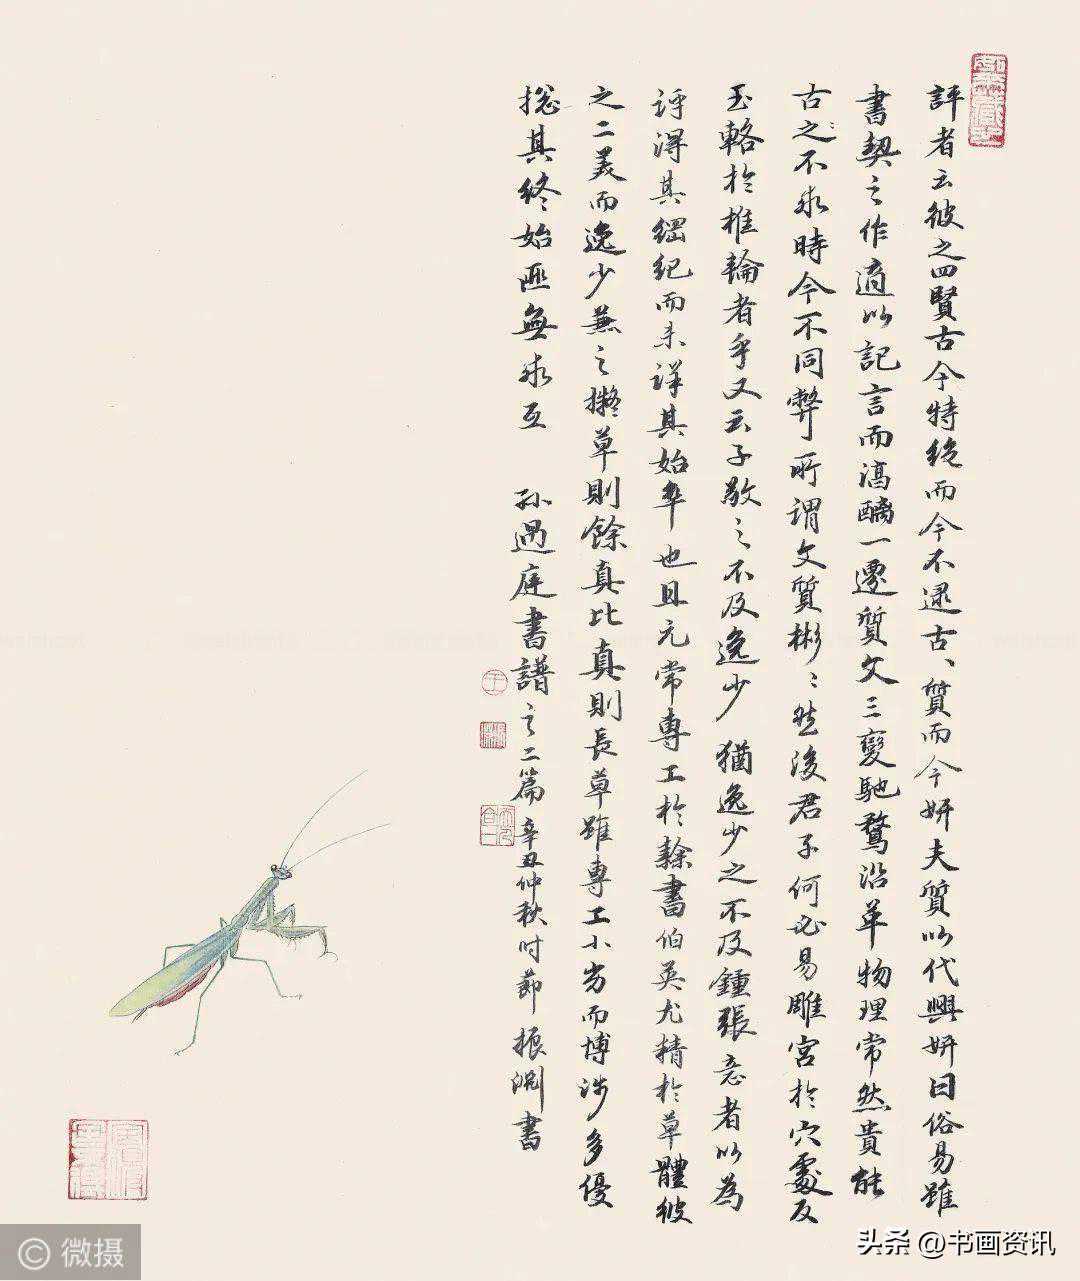 評者云彼之四賢古今特絕而今不逮古、質而今妍夫質以代興妍因俗易雖
書契之作適以記言而淳醨一遷質文三變馳騖沿革物理常然貴能
古之不乖時今不同弊所謂文質彬彬然後君子何必易雕宮於穴處反
玉輅於椎輪者乎又云子敬之不及逸少猶逸少之不及鍾張意者以為
評得其綱紀而未詳其始卒也且元常專工於隸書伯英尤精於草體彼
之二美而逸少兼之擬草則餘真比真則長草雖專工小劣而博涉多優
揔其終始匪無乖互 孫過庭書譜之二篇辛丑仲秋时節振渊書
© 微摄
头条 @书画资讯